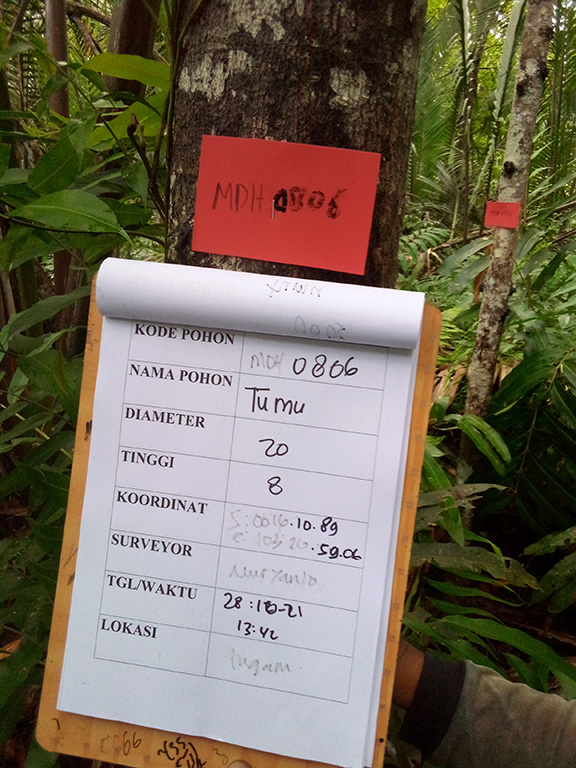 MDH 0806
KODE POHON MDH 0806
NAMA POHON Tumu
DIAMETER 20
TINGGI 8
KOORDINAT S: 0016.10.89
E: 103.20.59.06
SURVEYOR Nuryanto
TGL/WAKTU 28:10-21
13:42
LOKASI
0666